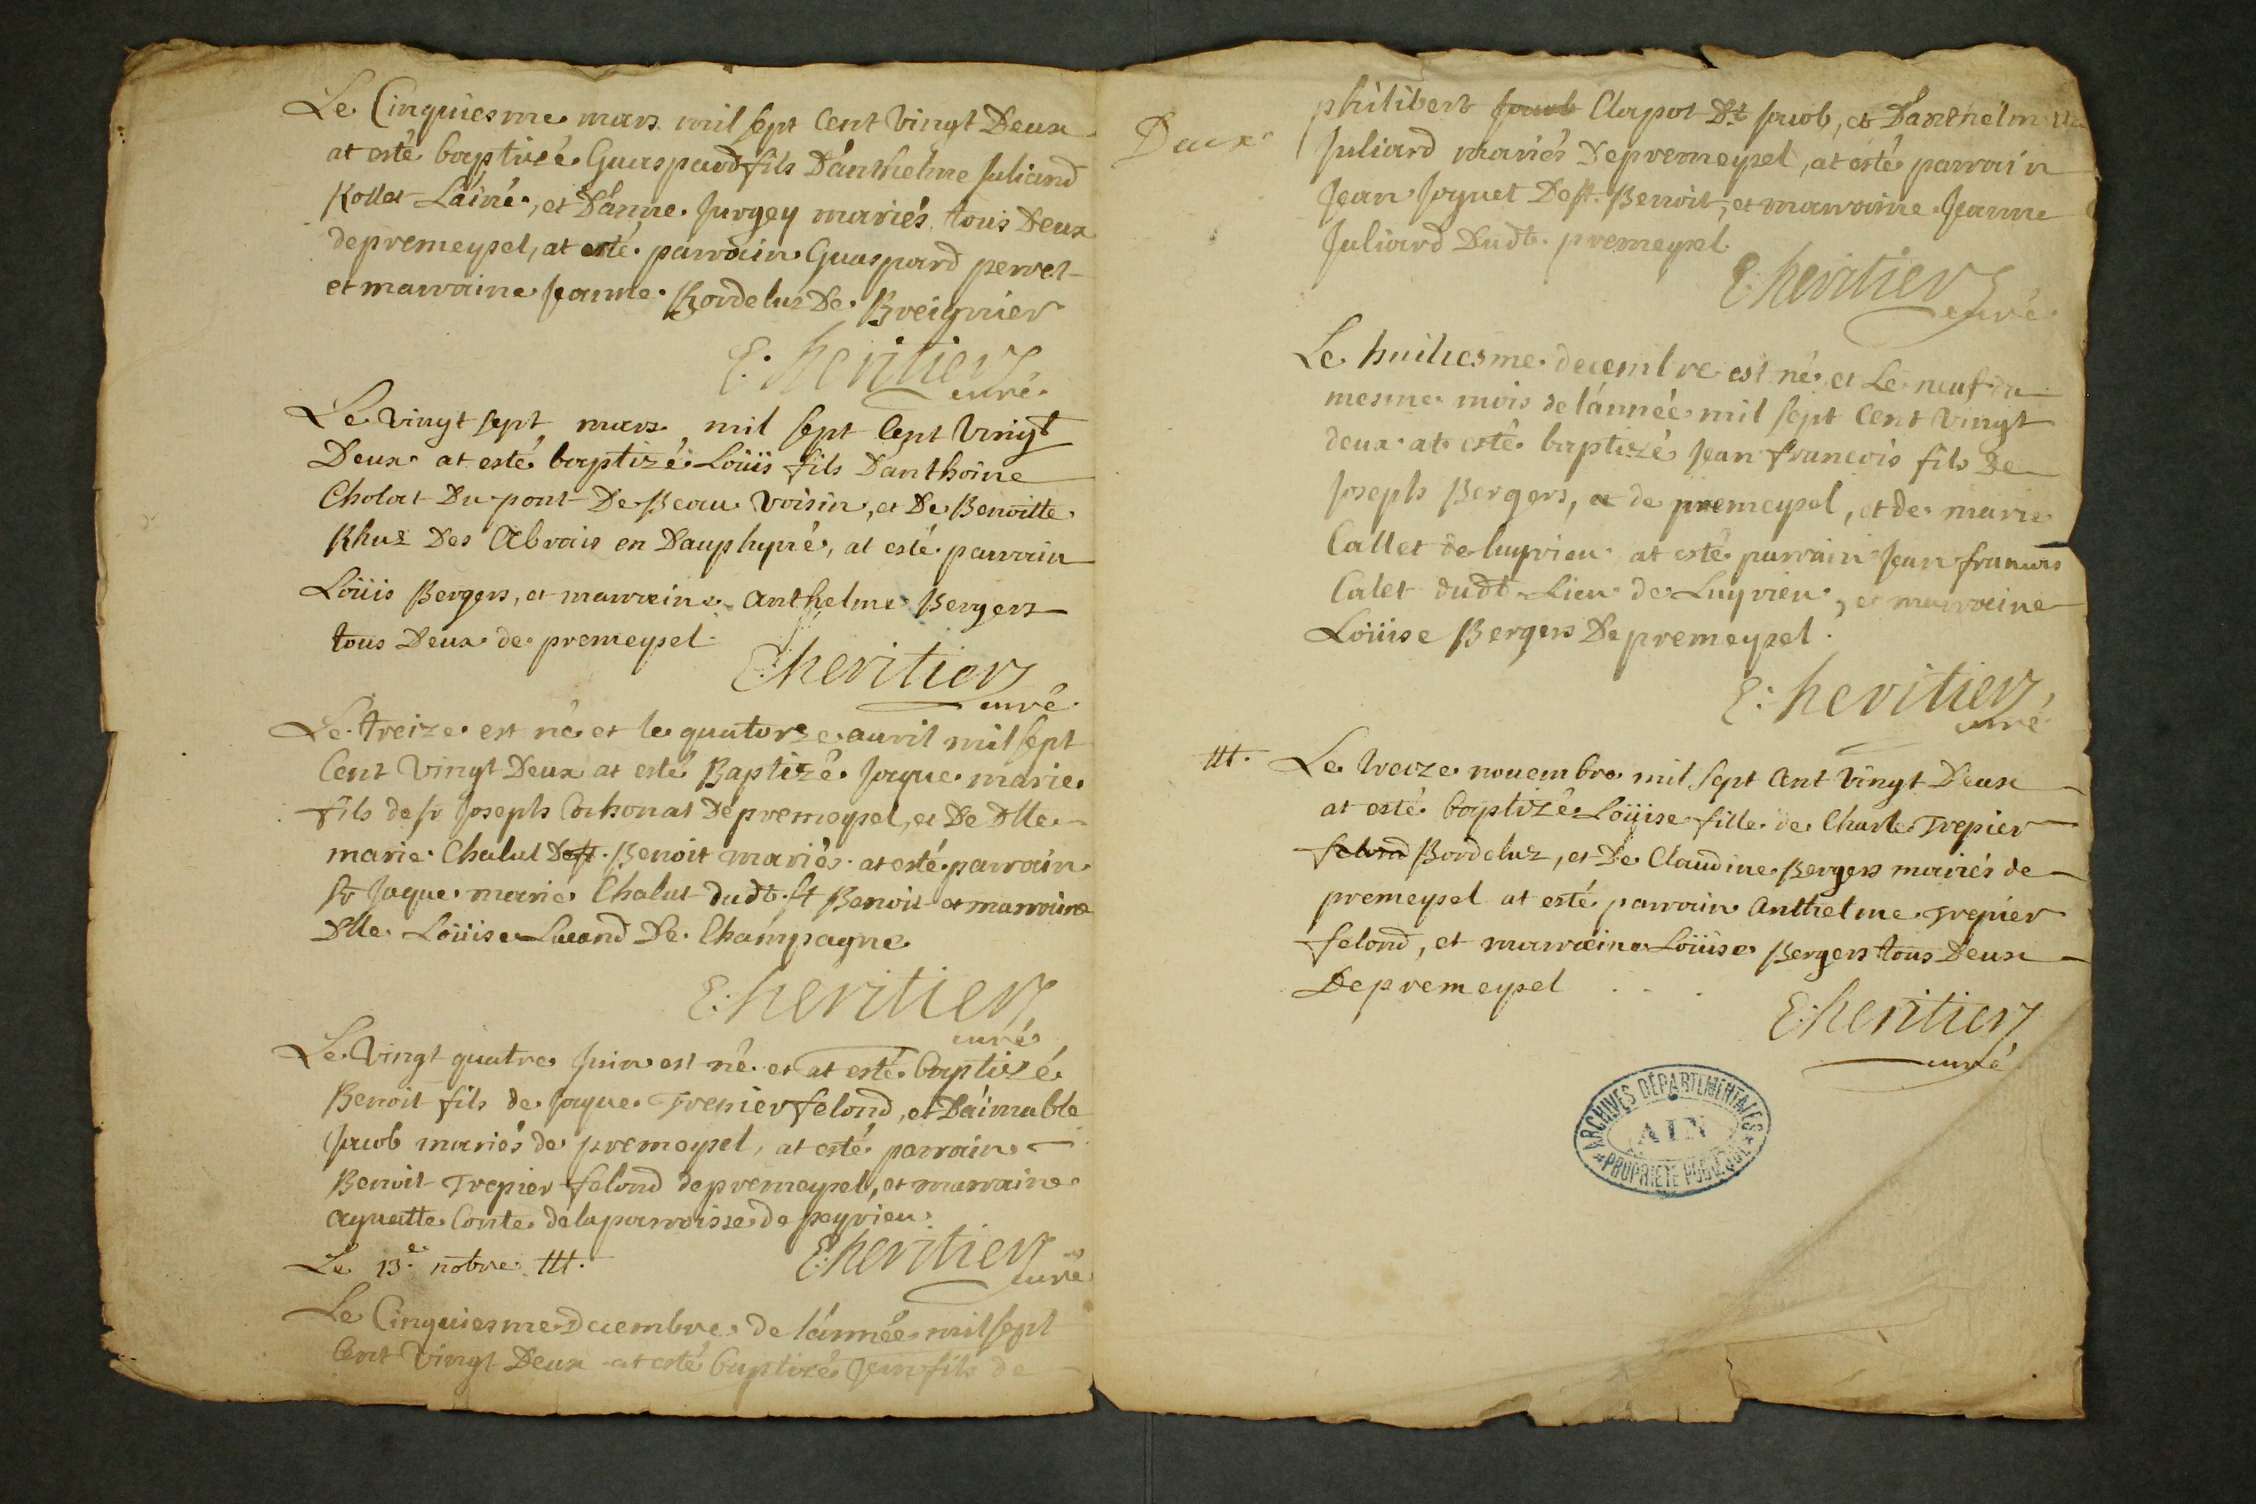 Le Cinquiesme mars mil sept Cent Vingt Deux
at esté baptisé Guaspard fils D'anthelme Juliard
Rollet Lainé, et D'anne Jurgey mariés tous Deux
de premeysel, at esté parrain Guaspard pervet
et marraine Jeanne Bordeluz De Breignier
E: heritier
curé
Le Vingt sept mars mil sept Cent Vingt
Deux at esté baptizé Loüis fils Danthoine
Cholat Du pont De Beau Voisin, et De Benoitte
Rhuz Des Abrais en Dauphyné, at esté parrain
Loüis Bergers, et marraine Anthelme Bergers
tous Deux de premeysel
E: heritier
curé
Le treize est né et le quatorze auril mil sept
Cent Vingt Deux at esté Baptizé Jaque marie
fils de sr Joseph Cochonat De premeysel, et De Dlle
marie Chalut De st Benoit mariés at esté parrain
Sr Jaque marie Chalut dudt. st Benoit et marraine
Dlle Loüise Lucand De Champagne
E: heritier
curé
Le Vingt quatre Juin est né et at esté baptizé
Benoit fils de Jaque Trepier felond, et D'aimable
Jacob mariés de premeysel, at esté parrain
Benoit Trepier felond de premeysel, et marraine
aynatte Conte de la parroisse de peyrieu
E: heritier
curé
Le 13e. nobre. ttt.
Le Cinquiesme Decembre de l'année mil sept
Cent Vingt Deux at esté baptizé Jean fils de
Deux
philibert Jacob Clapot Dt Jacob, et D'anthelme
Juliard mariés De premeysel, at esté parrain
Jean Joguet De st. Benoit, et marraine Jeanne
Juliard Dudt. premeysel
E: heritier
curé
Le huitiesme decembre est né et Le neuf du
mesme mois de l'année mil sept Cent Vingt
deux at esté baptizé Jean francois fils De
Joseph Bergers, de premeysel, et de marie
Callet de luyrieu at esté parrain Jean francois
Calet dudt Lieu de Luyrieu, et marraine
Loüise Bergers De premeysel.
E: heritier
curé
ttt. Le treize nouembre mil sept Cent Vingt Deux
at esté baptizé Loüise fille de Charle Trepier
felond Bordeluz, et De Claudine Bergers mariés de
premeysel at esté parrain Anthelme Trepier
felond, et marraine Loüise Bergers tous Deux
De premeysel . . .
E: heritier
curé
ARCHIVES DÉPARTEMENTALES
AIN
PROPRIÉTÉ PUBLIQUE